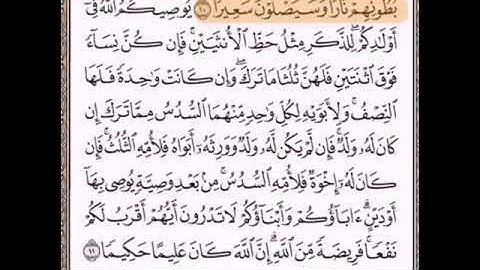 بُطُونِهِمْ نَارًا وَسَيَصْلَوْنَ سَعِيرًا ١٠ يُوصِيكُمُ ٱللَّهُ فِىٓ
أَوْلَٰدِكُمْ لِلذَّكَرِ مِثْلُ حَظِّ ٱلْأُنثَيَيْنِ فَإِن كُنَّ نِسَآءً
فَوْقَ ٱثْنَتَيْنِ فَلَهُنَّ ثُلُثَا مَا تَرَكَ وَإِن كَانَتْ وَٰحِدَةً فَلَهَا
ٱلنِّصْفُ وَلِأَبَوَيْهِ لِكُلِّ وَٰحِدٍ مِّنْهُمَا ٱلسُّدُسُ مِمَّا تَرَكَ إِن
كَانَ لَهُۥ وَلَدٌ فَإِن لَّمْ يَكُن لَّهُۥ وَلَدٌ وَوَرِثَهُۥٓ أَبَوَاهُ فَلِأُمِّهِ ٱلثُّلُثُ فَإِن
كَانَ لَهُۥٓ إِخْوَةٌ فَلِأُمِّهِ ٱلسُّدُسُ مِنۢ بَعْدِ وَصِيَّةٍ يُوصِى بِهَآ
أَوْ دَيْنٍ ءَابَآؤُكُمْ وَأَبْنَآؤُكُمْ لَا تَدْرُونَ أَيُّهُمْ أَقْرَبُ لَكُمْ
نَفْعًا فَرِيضَةً مِّنَ ٱللَّهِ إِنَّ ٱللَّهَ كَانَ عَلِيمًا حَكِيمًا ١١